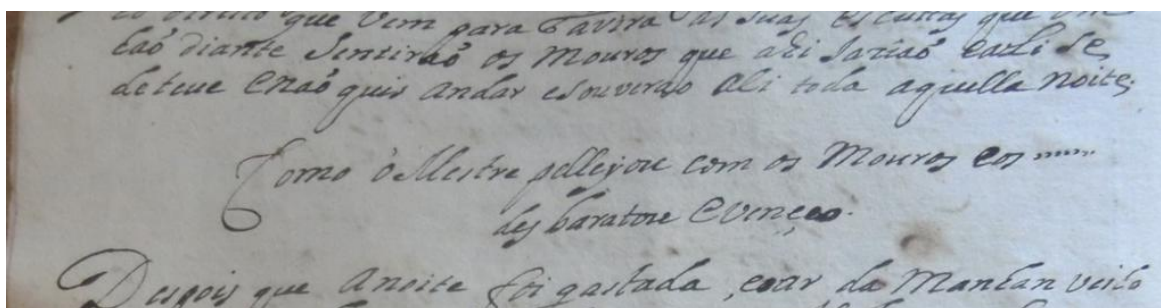 direito que vem para Tavira as suas escuitas que
diante sentirão os Mouros que ali jazião e ali se
deteue e não quis andar e souverão ali toda aquella noite,
Como o Mestre pellejou com os Mouros e os
desbaratou e venceo.
Despois que a noite foi gastada, e o ar da Manhan veio